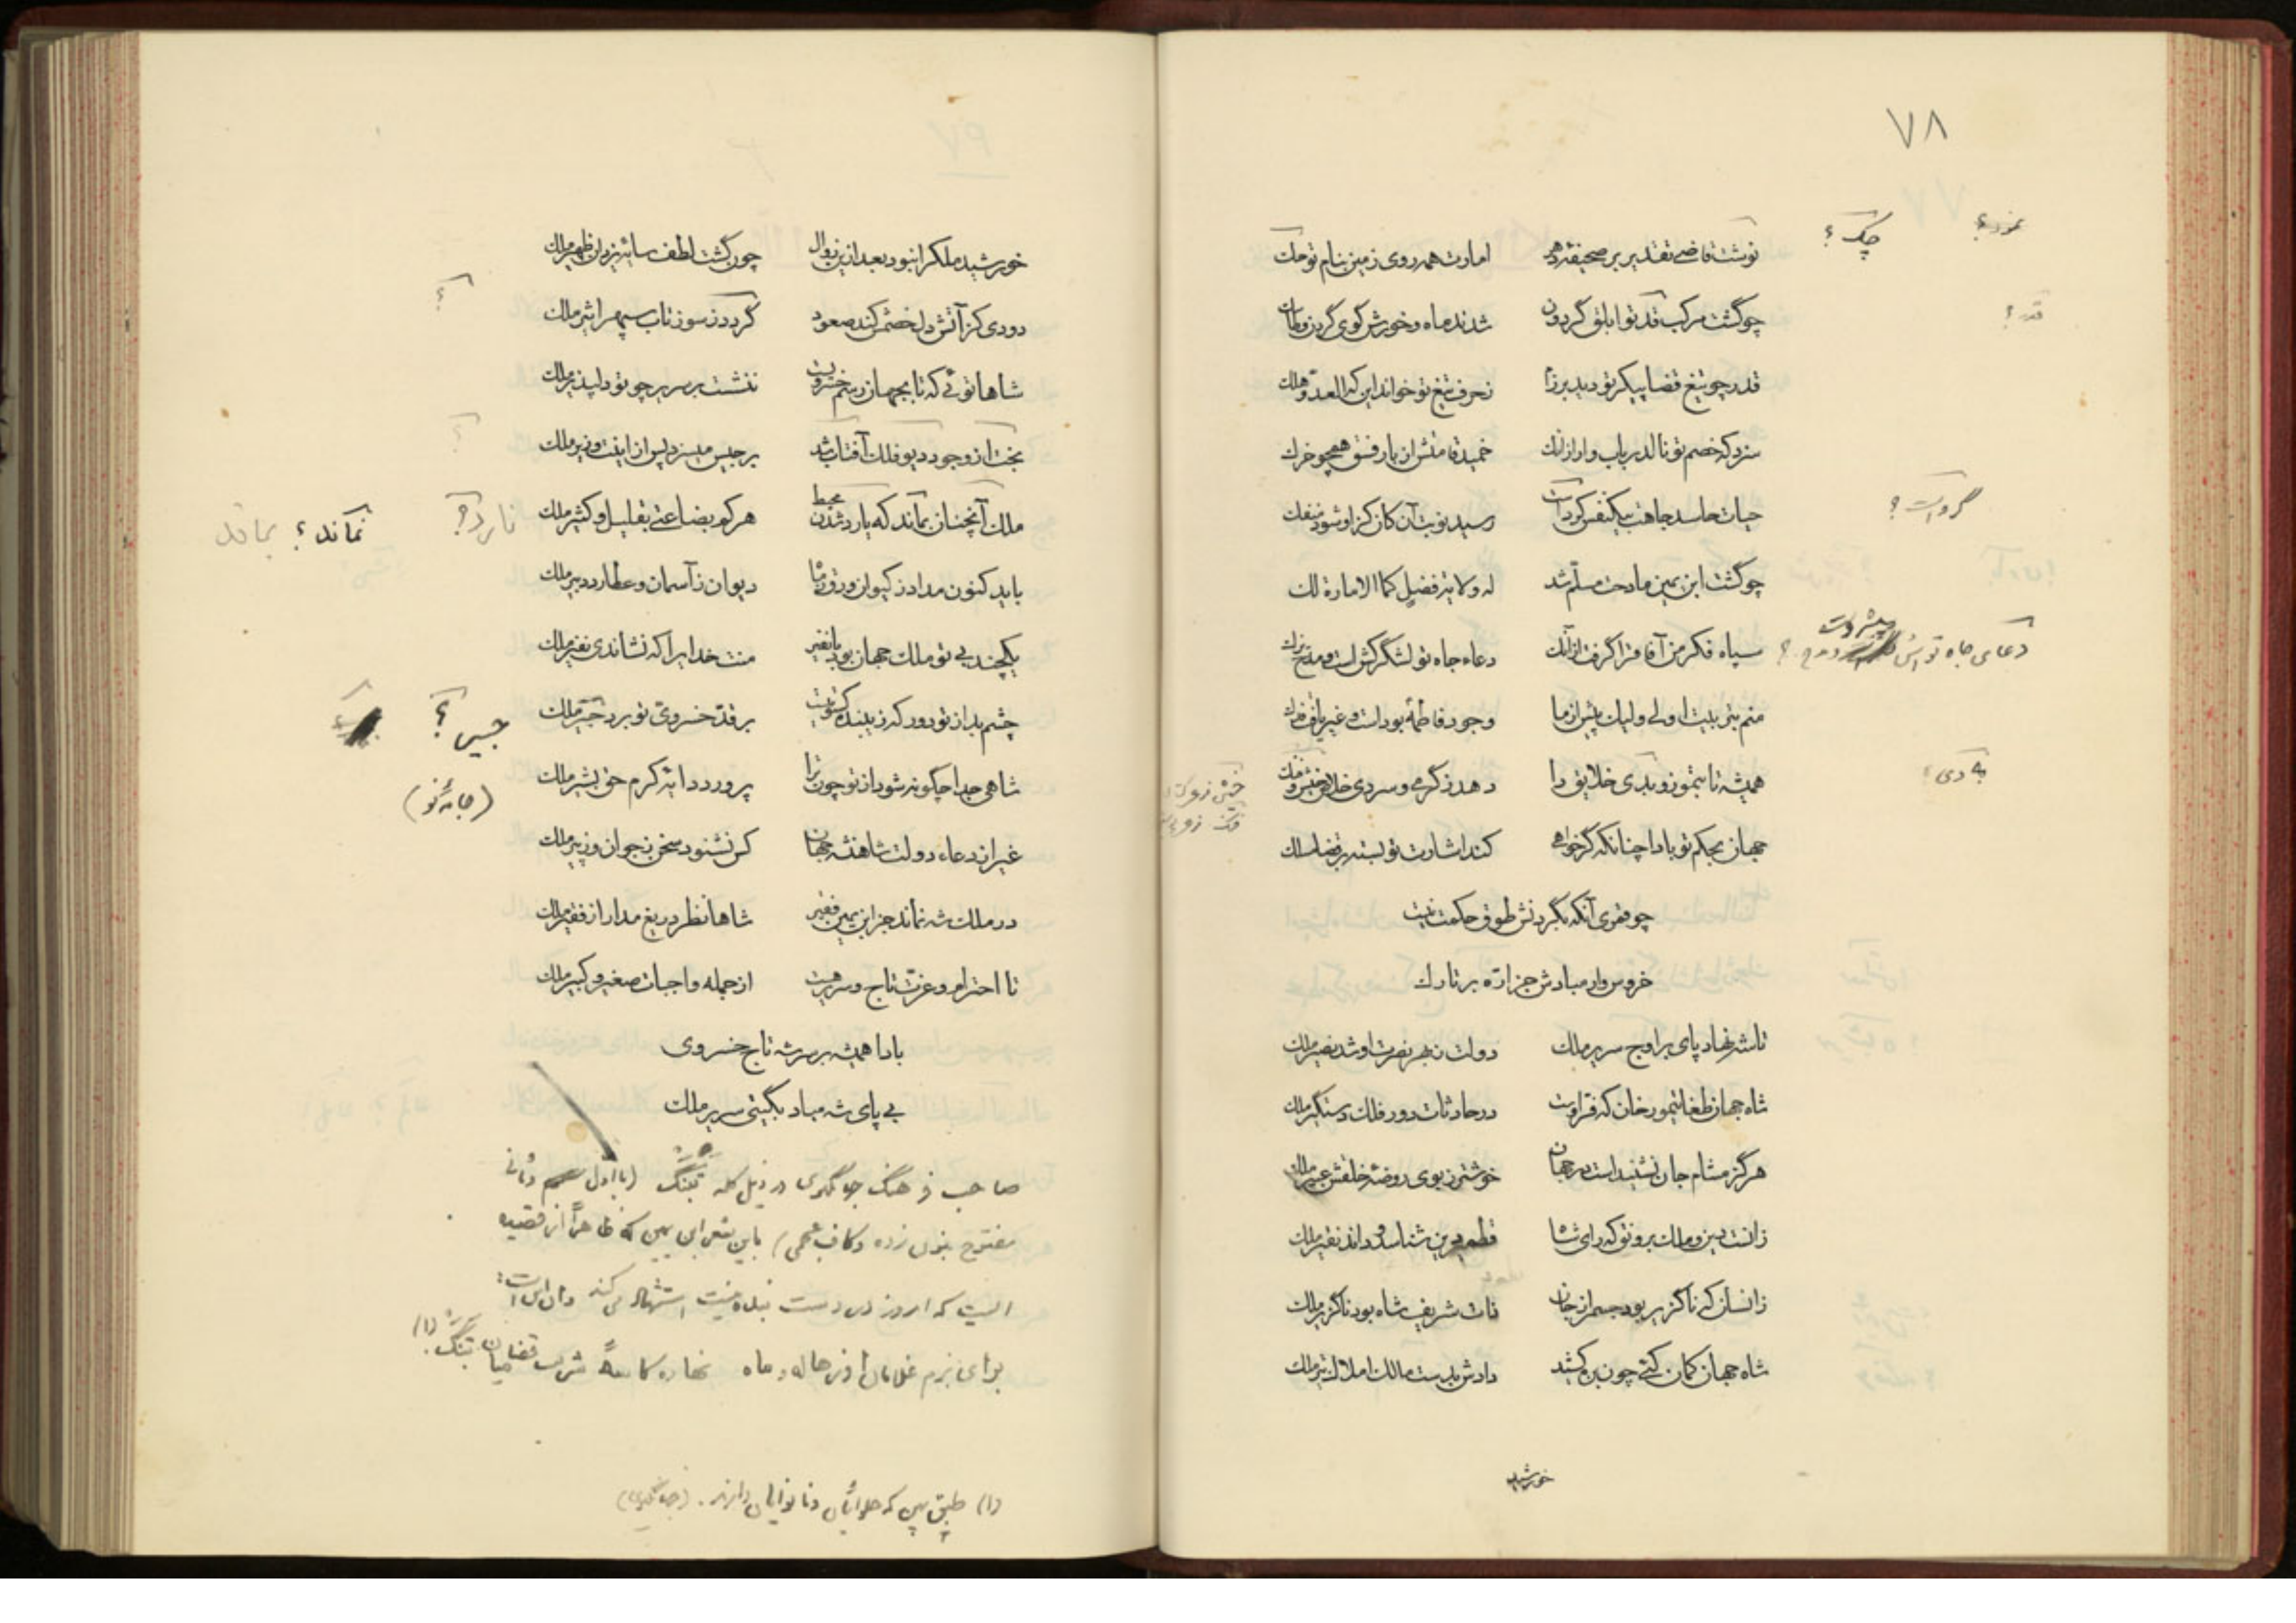 ۷۸
نوشت قاضی تقدیر بر صحیفه دهر امارت همه روی زمین بنام تو حک
چک ؟
چو گشت مرکب قدر تو ابلق گردون شدند ماه و خورش کوی
قدر چو تیغ قضا پیکر تو دید برزا ز حرف تیغ تو خواند این که العدو هلک
سزد که خصم تو نالد رباب وار ازانک خمید قامتش از بار فسق همچو خرک
حیات حاسد جاهت بیکنفس کرواست رسید نوبت آن کان کزاو شود منفک
گرواست ؟
چو گشت ابن یمین مادحت مسلم شد له ولایة فضل کما الامارة لک
سپاه فکر من آفاق را گرفت ازآنک دعاء جاه تو لشگرکش است و مدح یزک
دعای جاه تواش
منم بتربیت اولی ولیک پیش از ما وجود فاطمه بوداست و غیر یافت فدک
همیشه تا بتموز و بدی خلایق را دهد ز گرمی و سردی خلاص خیش و فنک
به دی ؟
جهان بحکم تو بادا چنانکه گر خواهی کند اشارت تو بسته
چو قمری آنکه بگردنش طوق حکمت نیست
خروس وار مبادش جز اره بر تارک
تا شه نهاد پای بر اوج سریر ملک دولت بهر نصرت او شد نصیر ملک
شاه جهان طغایتمور خان که فر اوست در حادثات دور فلک دستگیر ملک
هرگز مشام جان نشنیداست در جهان خوشتر ز بوی روضه خلقش عبیر ملک
زانست دین و ملک برونق که رای شاه قطمیر دین شناسد و داند نقیر ملک
زانسان که ناگزیر بود جسم از جان ذات شریف شاه بود ناگزیر ملک
شاه جهان کمان کئی چون بزه کشد دادش بدست مالک املاک تیر ملک
خورشید
خورشید ملک را نبود بعد ازین زوال چون گشت لطف سایه یزدان ظهیر ملک
دودی کز آتش دل خصمش کند صعود گردد ز سوز تاب سپهر اثیر ملک
شاها توئی که تا بجهان رسم خسرویست ننشست بر سریر چو تو دلپذیر ملک
بخت از وجود دیو فلک آفتاب شد برجیس میسزد پس از اینت وزیر ملک
ملک آنچنان بماند که یارد شدن محیط هر کم بضاعتی بقلیل و کثیر ملک
نماند ؟
باید کنون مداد ز کیوان ورق ز ماه دیوان ز آسمان و عطارد دبیر ملک
یکچند بی تو ملک جهان بود با نفیر منت خدایرا که نشاندی نفیر ملک
چشم بد از تو دور که زیبنده کسوتیست بر قد خسروی تو برد حبیر ملک
(جامه نو)
شاهی جدا چگونه شود از تو چون ترا پرورد دایه کرم حق بشیر ملک
غیر از دعاء دولت شاهنشه جهان کس نشنود سخن ز جوان و ز پیر ملک
در ملک شه نماند جز ابن یمین فقیر شاها نظر دریغ مدار از فقیر ملک
تا احترام و عزت تاج و سریر هست از جمله واجبات صغیر و کبیر ملک
بادا همیشه بر سر شه تاج خسروی
بی پای شه مباد بگیتی سریر ملک
صاحب فرهنگ جهانگیری در ذیل کلمه تبنگ (با اول و ثانی
مفتوح بنون زده و کاف عجمی) باین شعر ابن یمین که ظاهراً از قصیده
ایست که امروز در دست نیست استشهاد می‌کند و آن اینست:
برای بزم غلامان او ز هاله و ماه نهاده کاسه شربت میان تبنگ (۱)
(۱) طبق پهن که حلوائیان و نانوایان دارند. (جهانگیری)